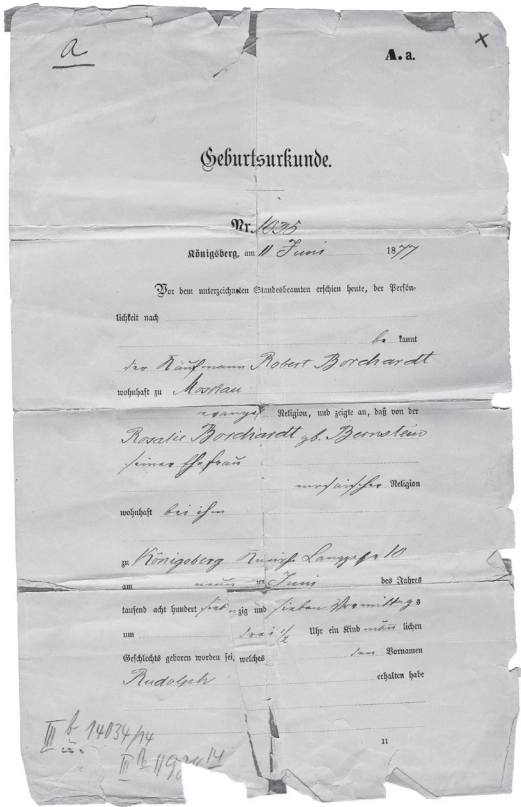 a
A. a.
x
Geburtsurkunde.
Nr. 1035
Königsberg, am 11 Juni 1877
Vor dem unterzeichneten Standesbeamten erschien heute, der Persön-
lichkeit nach
be kannt
der Kaufmann Robert Borchardt
wohnhaft zu Moskau
evangel Religion, und zeigte an, daß von der
Rosalie Borchardt gb. Bernstein
seiner Ehefrau
mosaischer Religion
wohnhaft bei ihm
zu Königsberg Langgasse 10
am neun ten Juni des Jahres
tausend acht hundert sieb zig und sieben Vormittags
um drei 1/2 Uhr ein Kind männ lichen
Geschlechts geboren worden sei, welches den Vornamen
Rudolph erhalten habe
III b 14034/14
11